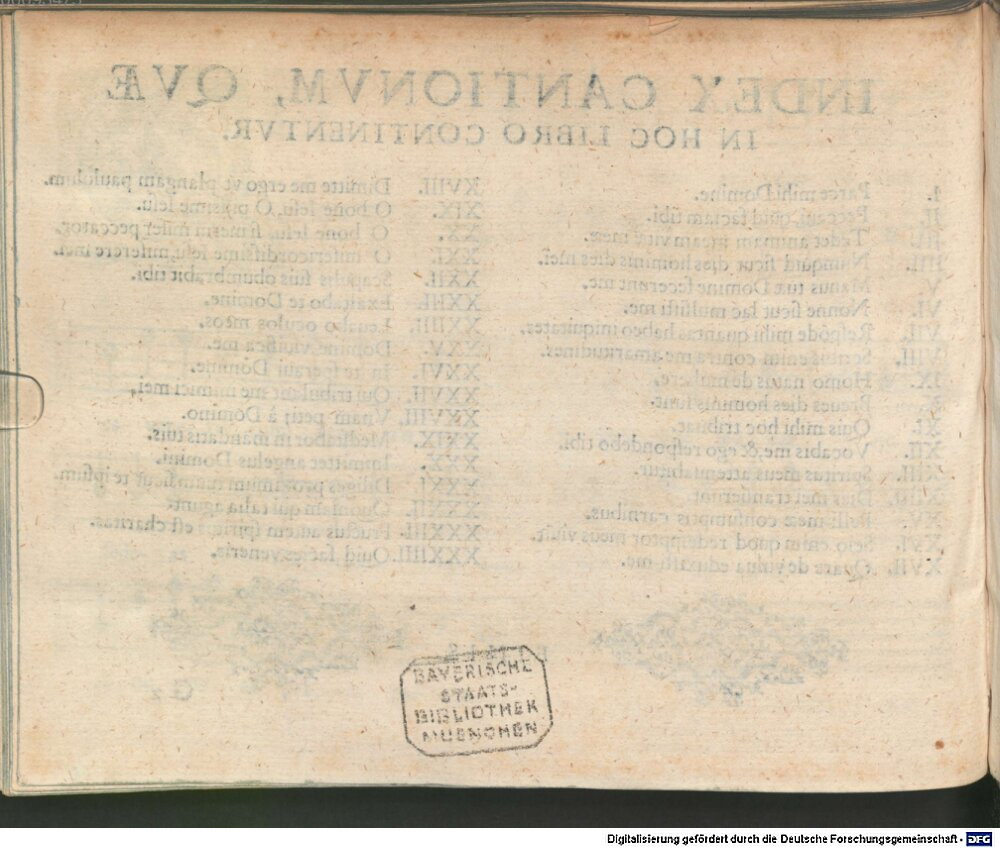 INDEX CANTIONVM, QVÆ
IN HOC LIBRO CONTINENTVR.
I. Parce mihi Domine.
II. Peccaui, quid faciam tibi.
III. Tædet animam meam vitæ meæ.
IIII. Nunquid sicut dies hominis dies mei.
V. Manus tuæ Domine fecerunt me.
VI. Nonne sicut lac mulsisti me.
VII. Respõde mihi quantas habeo iniquitates.
VIII. Scribis enim contra me amaritudines.
IX. Homo natus de muliere.
X. Breues dies hominis sunt.
XI. Quis mihi hoc tribuat.
XII. Vocabis me, & ego respondebo tibi.
XIII. Spiritus meus attenuabitur.
XIIII. Dies mei transierunt.
XV. Pelli meæ consumptis carnibus.
XVI. Scio enim quod redemptor meus viuit.
XVII. Quare de vulua eduxisti me.
XVIII. Dimitte me ergo vt plangam paululum.
XIX. O bone Iesu, O piissime Iesu.
XX. O bone Iesu, si merui miser peccator.
XXI. O misericordissime Iesu, miserere mei.
XXII. Scapulis suis obumbrabit tibi.
XXIII. Exaltabo te Domine.
XXIIII. Leuabo oculos meos.
XXV. Domine viuifica me.
XXVI. In te speraui Domine.
XXVII. Qui tribulant me inimici mei,
XXVIII. Vnam petij à Domino.
XXIX. Meditabor in mandatis tuis.
XXX. Immittet angelus Domini.
XXXI. Diliges proximum tuum sicut te ipsum.
XXXII. Quoniam qui talia agunt.
XXXIII. Fructus autem spiritus est charitas.
XXXIIII. Quid facies veneris.
BAYERISCHE
STAATS-
BIBLIOTHEK
MUENCHEN
Digitalisierung gefördert durch die Deutsche Forschungsgemeinschaft - DFG